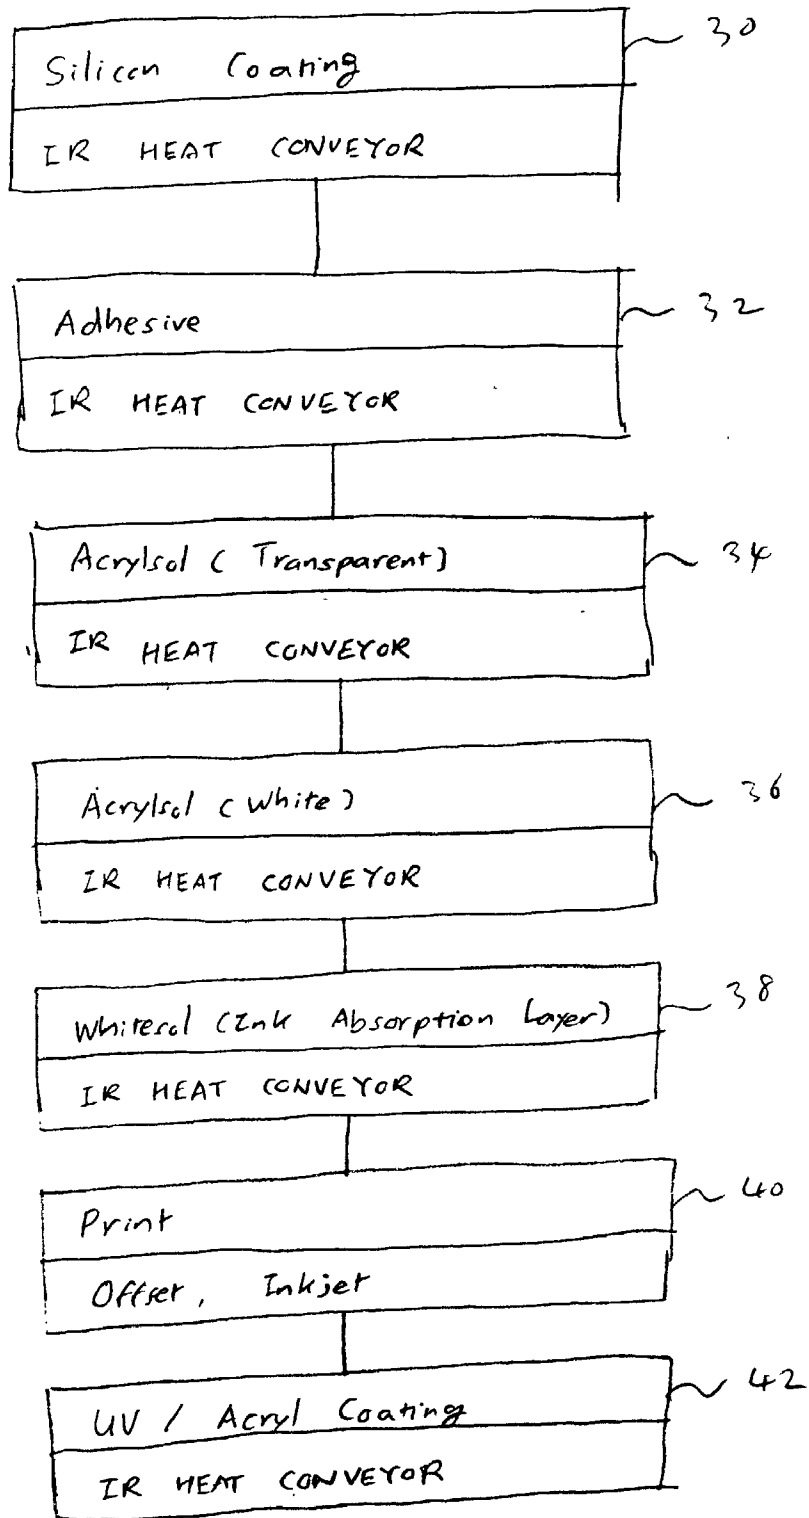 Silicon Coating
30
IR HEAT CONVEYOR
Adhesive
32
IR HEAT CONVEYOR
Acrylsol (Transparent)
34
IR HEAT CONVEYOR
Acrylsol (White)
36
IR HEAT CONVEYOR
Whitesol (Ink Absorption Layer)
38
IR HEAT CONVEYOR
Print
40
Offset, Inkjet
UV / Acryl Coating
42
IR HEAT CONVEYOR